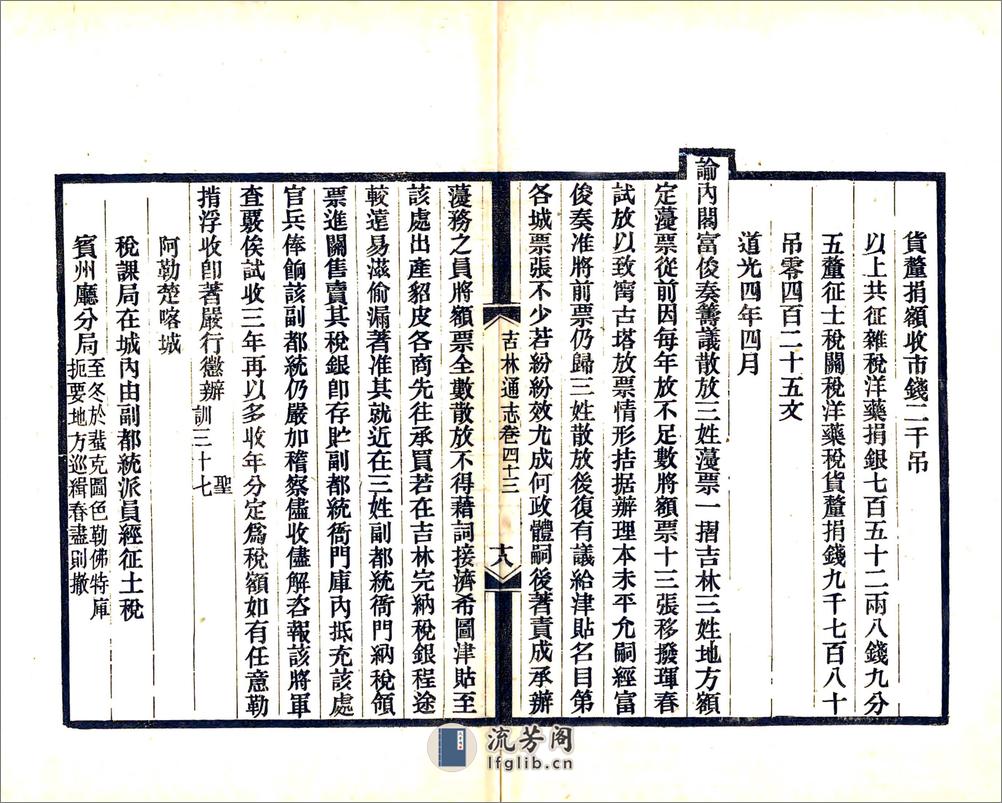 貨釐捐額收市錢二千吊
以上共征雜稅洋藥捐銀七百五十二兩八錢九分
五釐征土稅關稅洋藥稅貨釐捐錢九千七百八十
吊零四百二十五文
道光四年四月
諭內閣富俊奏籌議散放三姓蓡票一摺吉林三姓地方額
定蓡票從前因每年放不足數將額票十三張移撥琿春
試放以致甯古塔放票情形拮据辦理本未平允嗣經富
俊奏准將前票仍歸三姓散放後復有議給津貼名目第
各城票張不少若紛紛效尤成何政體嗣後著責成承辦
吉林通志卷四十三
十八
蓡務之員將額票全數散放不得藉詞接濟希圖津貼至
該處出產貂皮各商先往承買若在吉林完納稅銀程途
較遠易滋偷漏著准其就近在三姓副都統衙門納稅領
票進關售賣其稅銀卽存貯副都統衙門庫內抵充該處
官兵俸餉該副都統仍嚴加稽察儘收儘解咨報該將軍
查覈俟試收三年再以多收年分定爲稅額如有任意勒
掯浮收卽著嚴行懲辦聖訓三十七
阿勒楚喀城
稅課局在城內由副都統派員經征土稅
賓州廳分局至冬於蜚克圖色勒佛特庫扼要地方巡緝春盡則撤
流芳阁
lfglib.cn